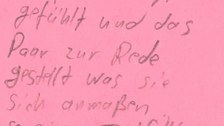 gefühlt und das
Paar zur Rede
gestellt was sie
sich anmaßen